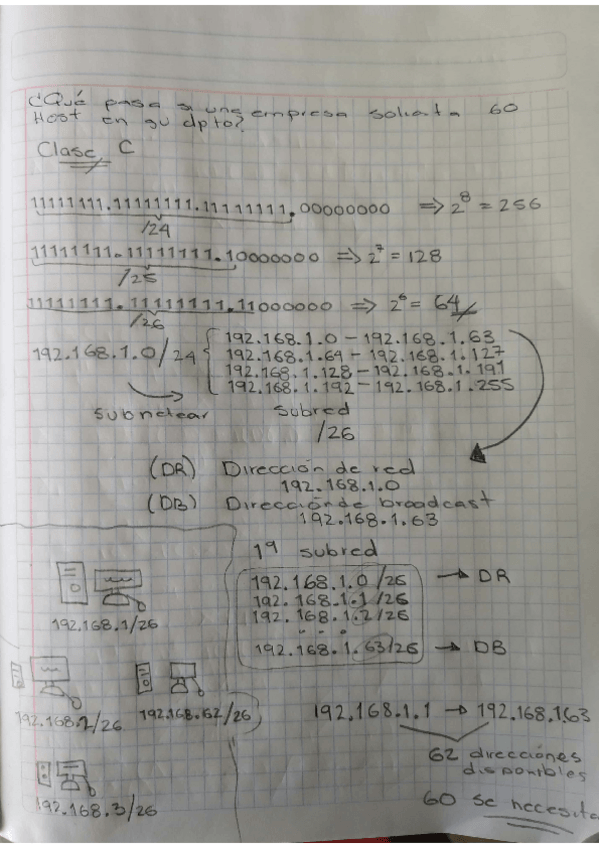 ¿Qué pasa si una empresa solicita 60
Host en su dpto?
Clase C
11111111.11111111.11111111.00000000 => 2^8 = 256
/24
11111111.11111111.10000000 => 2^7 = 128
/25
11111111.11111111.11000000 => 2^6 = 64
/26
192.168.1.0/24
192.168.1.0 - 192.168.1.63
192.168.1.64 - 192.168.1.127
192.168.1.128 - 192.168.1.191
192.168.1.192 - 192.168.1.255
Subnetear
Subred
/26
(DR) Dirección de red
192.168.1.0
(DB) Dirección de broadcast
192.168.1.63
1ª subred
192.168.1.0/26 → DR
192.168.1.1/26
192.168.1.2/26
...
192.168.1.63/26 → DB
192.168.1/26
192.168.2/26
192.168.62/26
192.168.3/26
192.168.1.1 → 192.168.1.63
62 direcciones
disponibles
60 se necesita